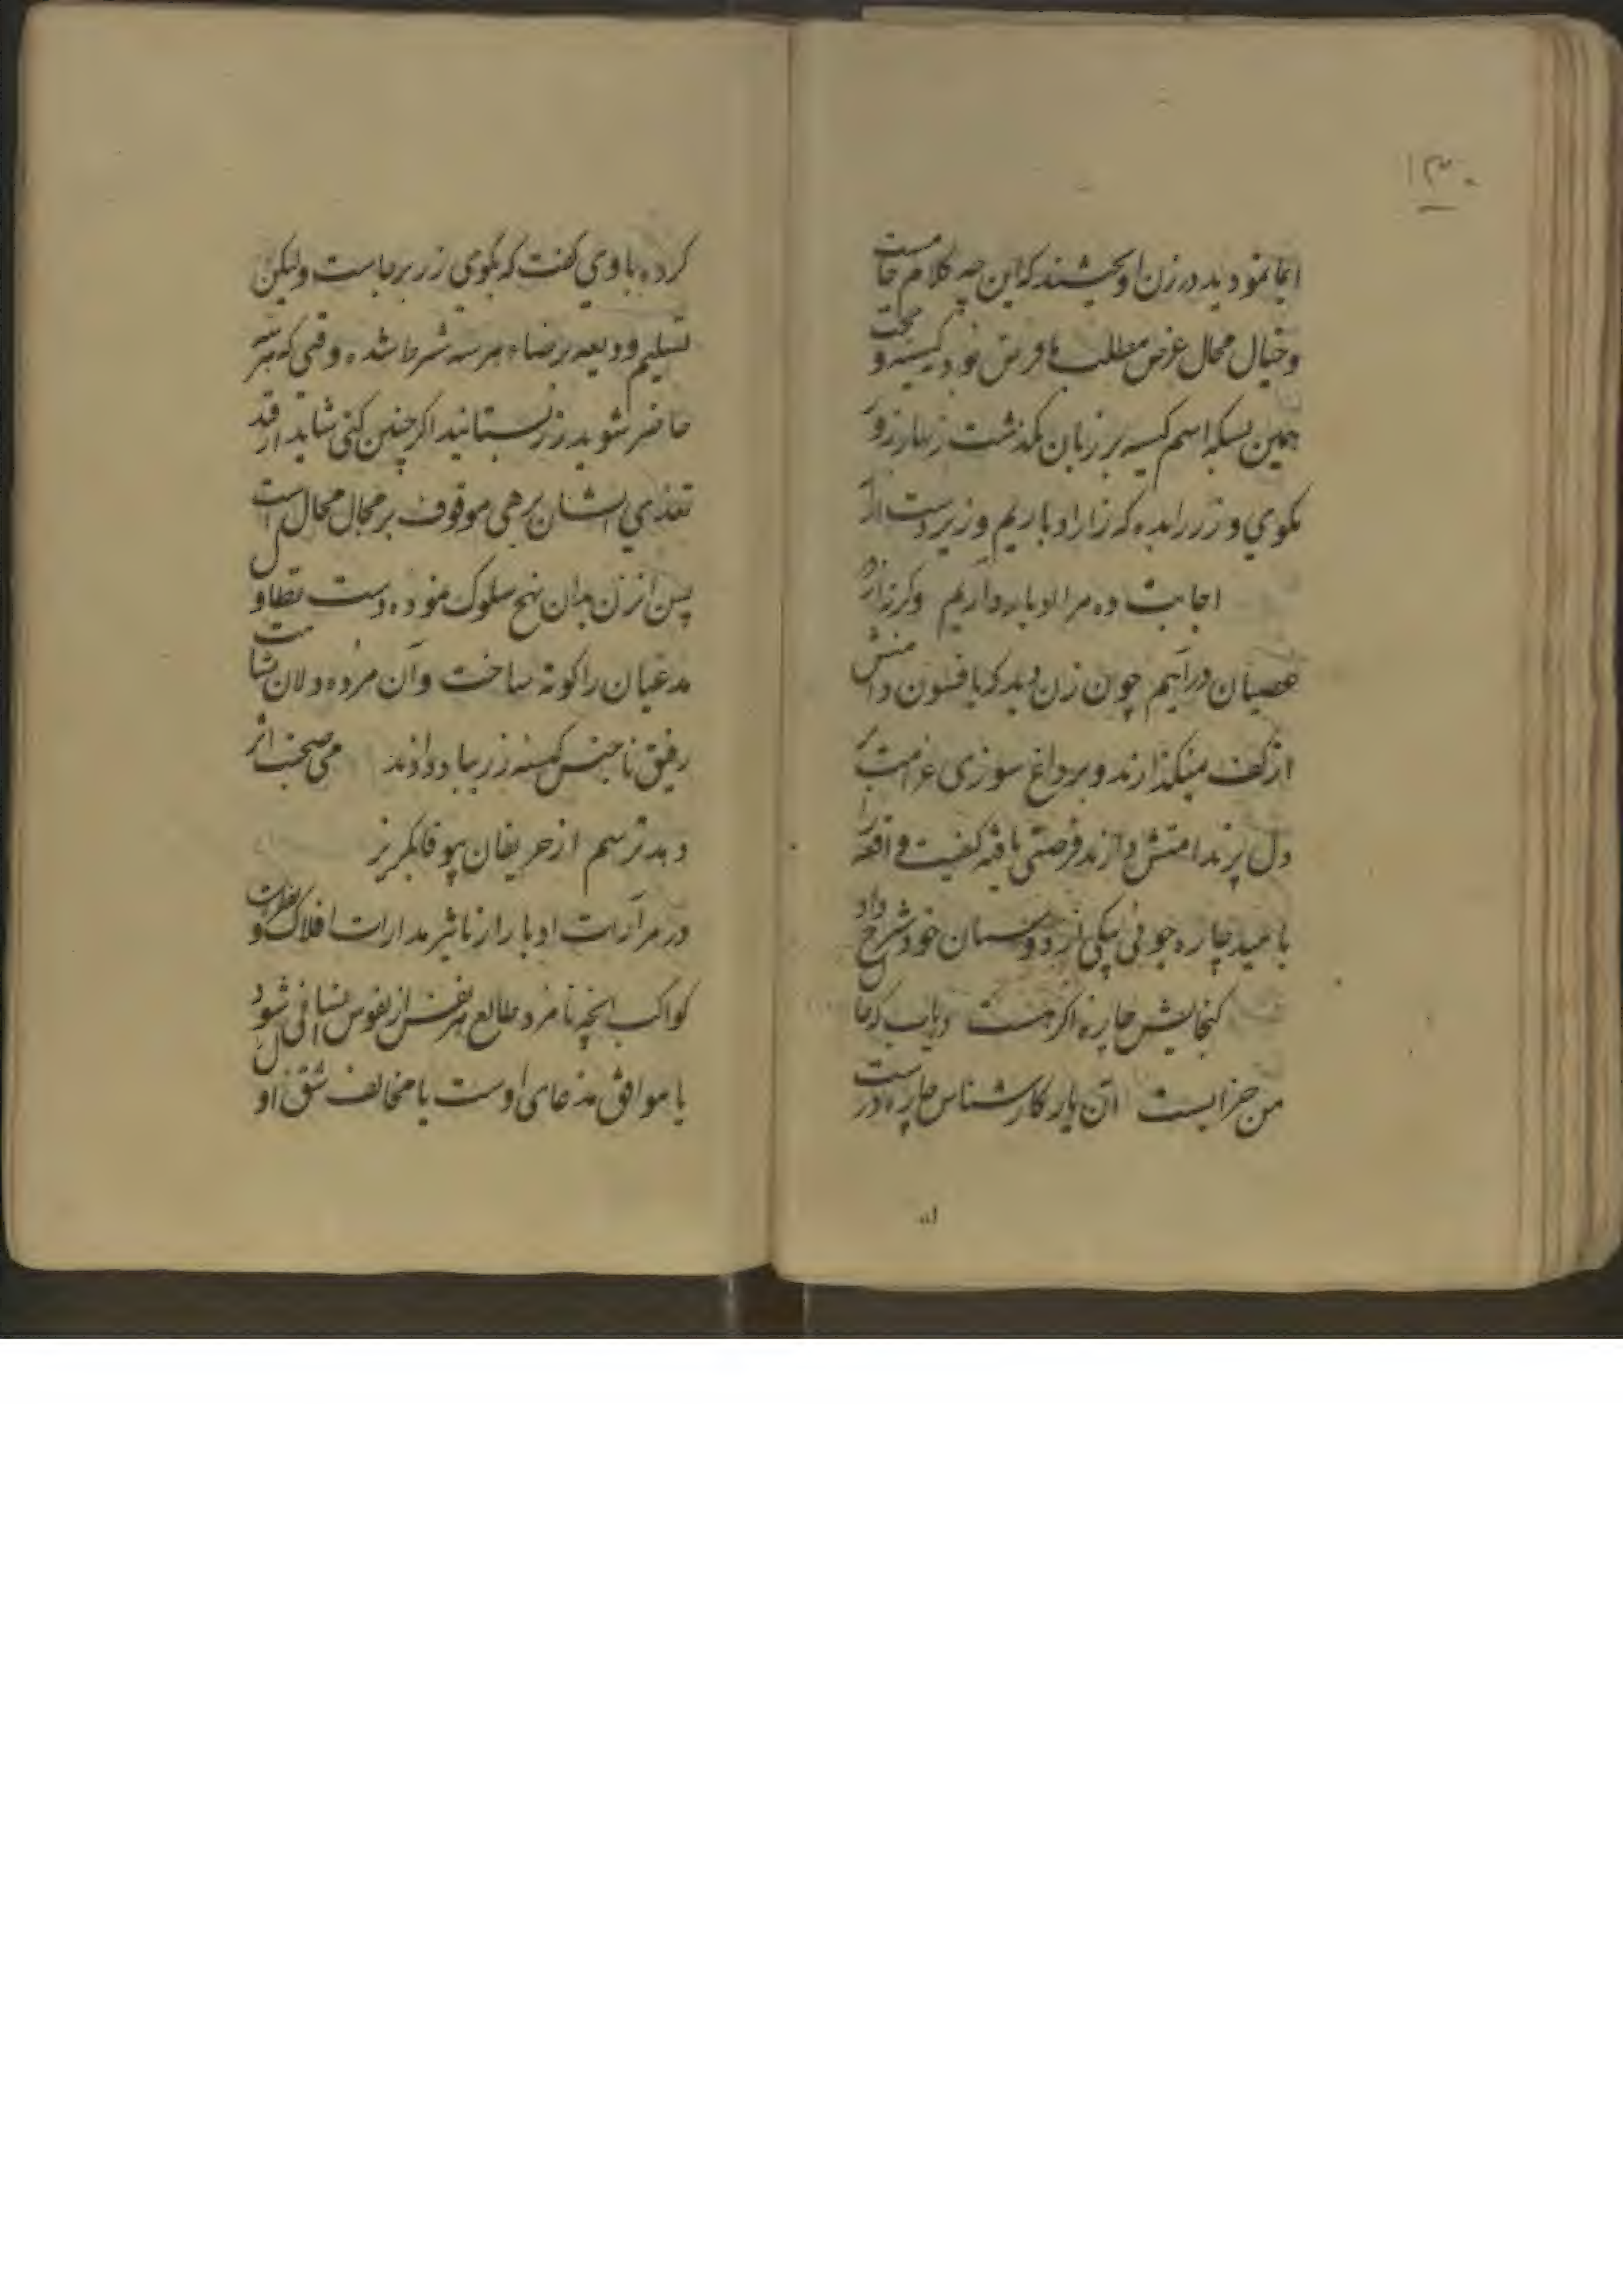 ۱۳۰
ایما نمودید در زن اویختند که این چه کلام خامست
و خیال محال غرض مطلب ما فرش بود نه کیسه و
همین بسکه اسم کیسه بر زبان گذشت زنهار زو
مکوی و زر را بده که زار او باریم و زیر دست از
اجابت ده مرا او باره داریم وگرنه از
عصیان درآییم چون زن دید که بافسون دامنش
از کف نمیگذارند و بر داغ سوزی غرامت
دل پر ندامتش دارند فرصتی یافته کیفیت واقعه را
بامید چاره جوئی بیکی از دوستان خود شرح داد
کنجایش چاره اکر هست دریاب که جا
من خرابیست آن یار کارشناس چاره
کرده با وی گفت که بگوی زر برجاست ولیکن
تسلیم ودیعه برضاء هر سه شرط شده وقتی که هر سه
حاضر شوید زر بستانید اکر چنین کنی شاید از قید
تعذی ایشان برهی موقوف بر محال محال است
پس از زن بدان نهج سلوک نموده دست تطاول
مدعیان را کوته ساخت و آن مرده دلان شامت
رفیق ناجنس کیسه زر بباد دادند می صحبت اثر
دهد ترسم از حریفان بیوفا بگریز
در مرآت ادبار از تاثیر مدارات افلاک و نظرات
کواکب انچه نامزد طالع هر نفس از نفوس انسانی شود
یا موافق مدعای اوست یا مخالف شق اول